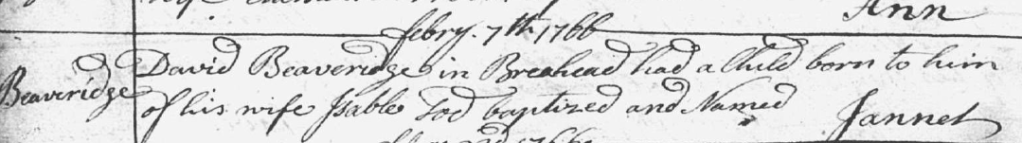 Ann
febry. 7th 1766
Beaveridge
David Beaveridge in Breahead had a Child born to him
of his wife Isable Tod baptized and Named Jannet